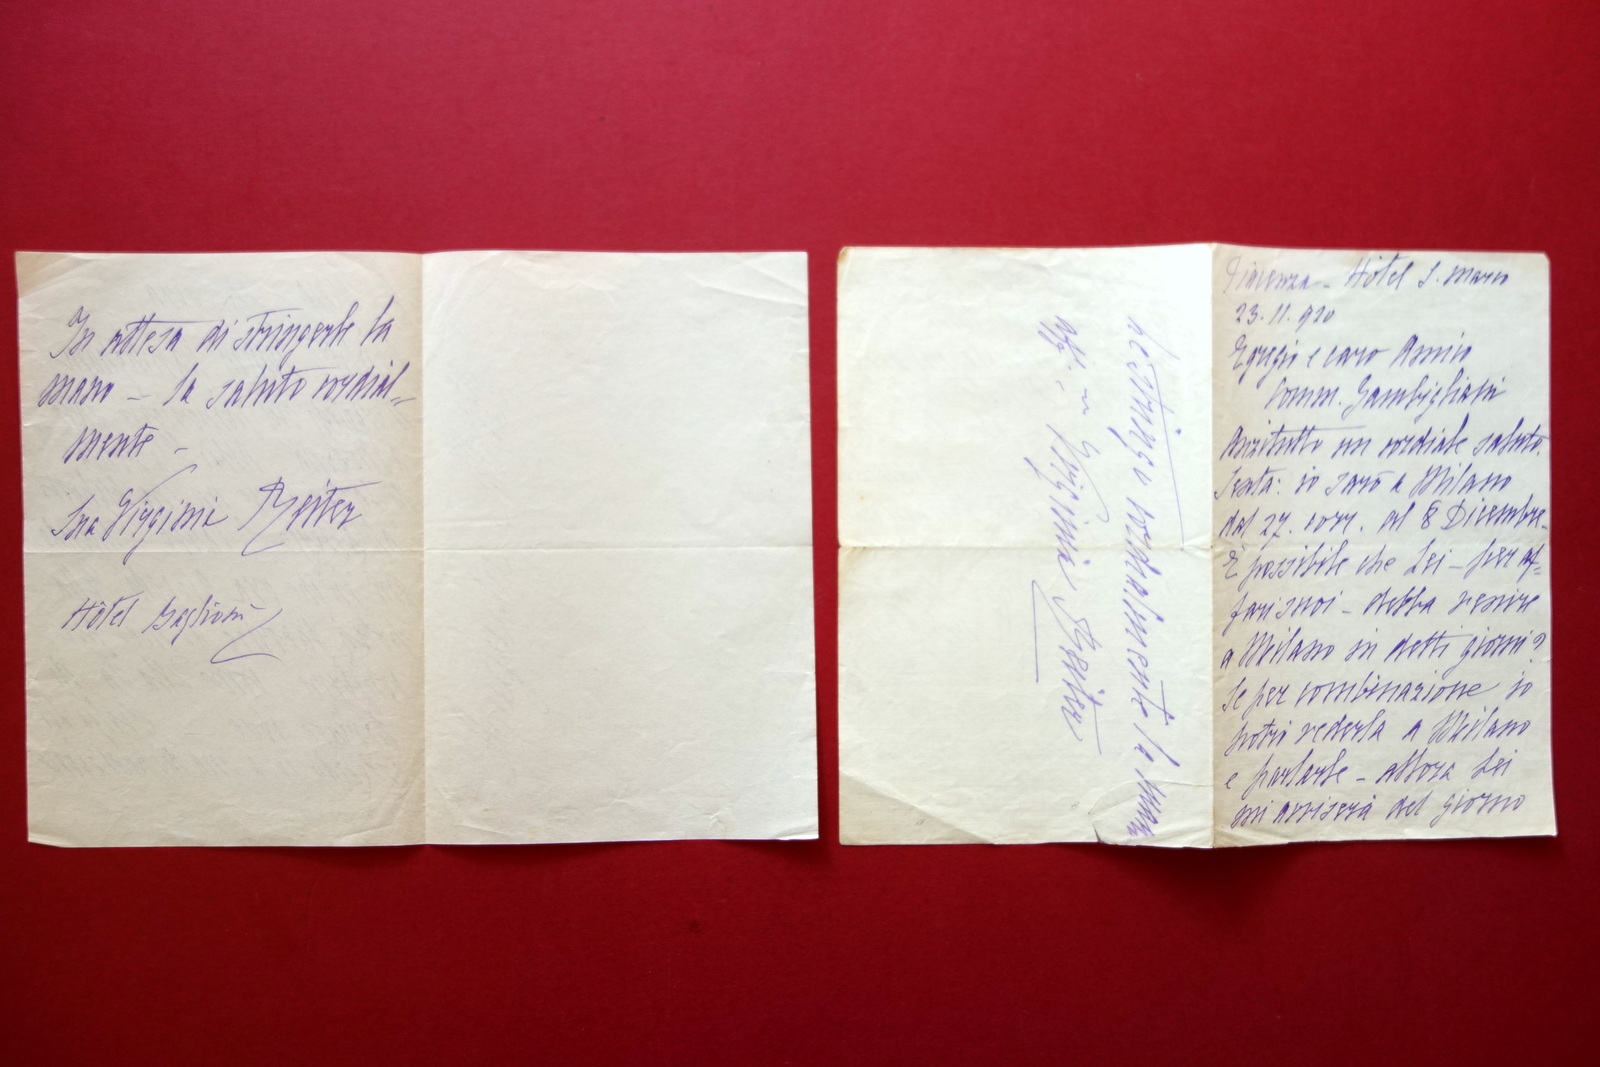 In attesa di stringerle la
mano – la saluto cordial=
mente –
Sua Virginia Reiter
Hôtel Baglioni
Piacenza – Hôtel S. Marco
23. 11. 920
Egregio e caro Amico
Comm. Gambigliani
Anzitutto un cordiale saluto.
Senta: io sarò a Milano
dal 27. corr. al 8 Dicembre.
È possibile che Lei – per af=
fari suoi – debba venire
a Milano in detti giorni?
Se per combinazione io
potrò vederla a Milano
e parlarle – allora Lei
mi avviserà del giorno
Le stringo cordialmente la mano
aff. Virginia Reiter